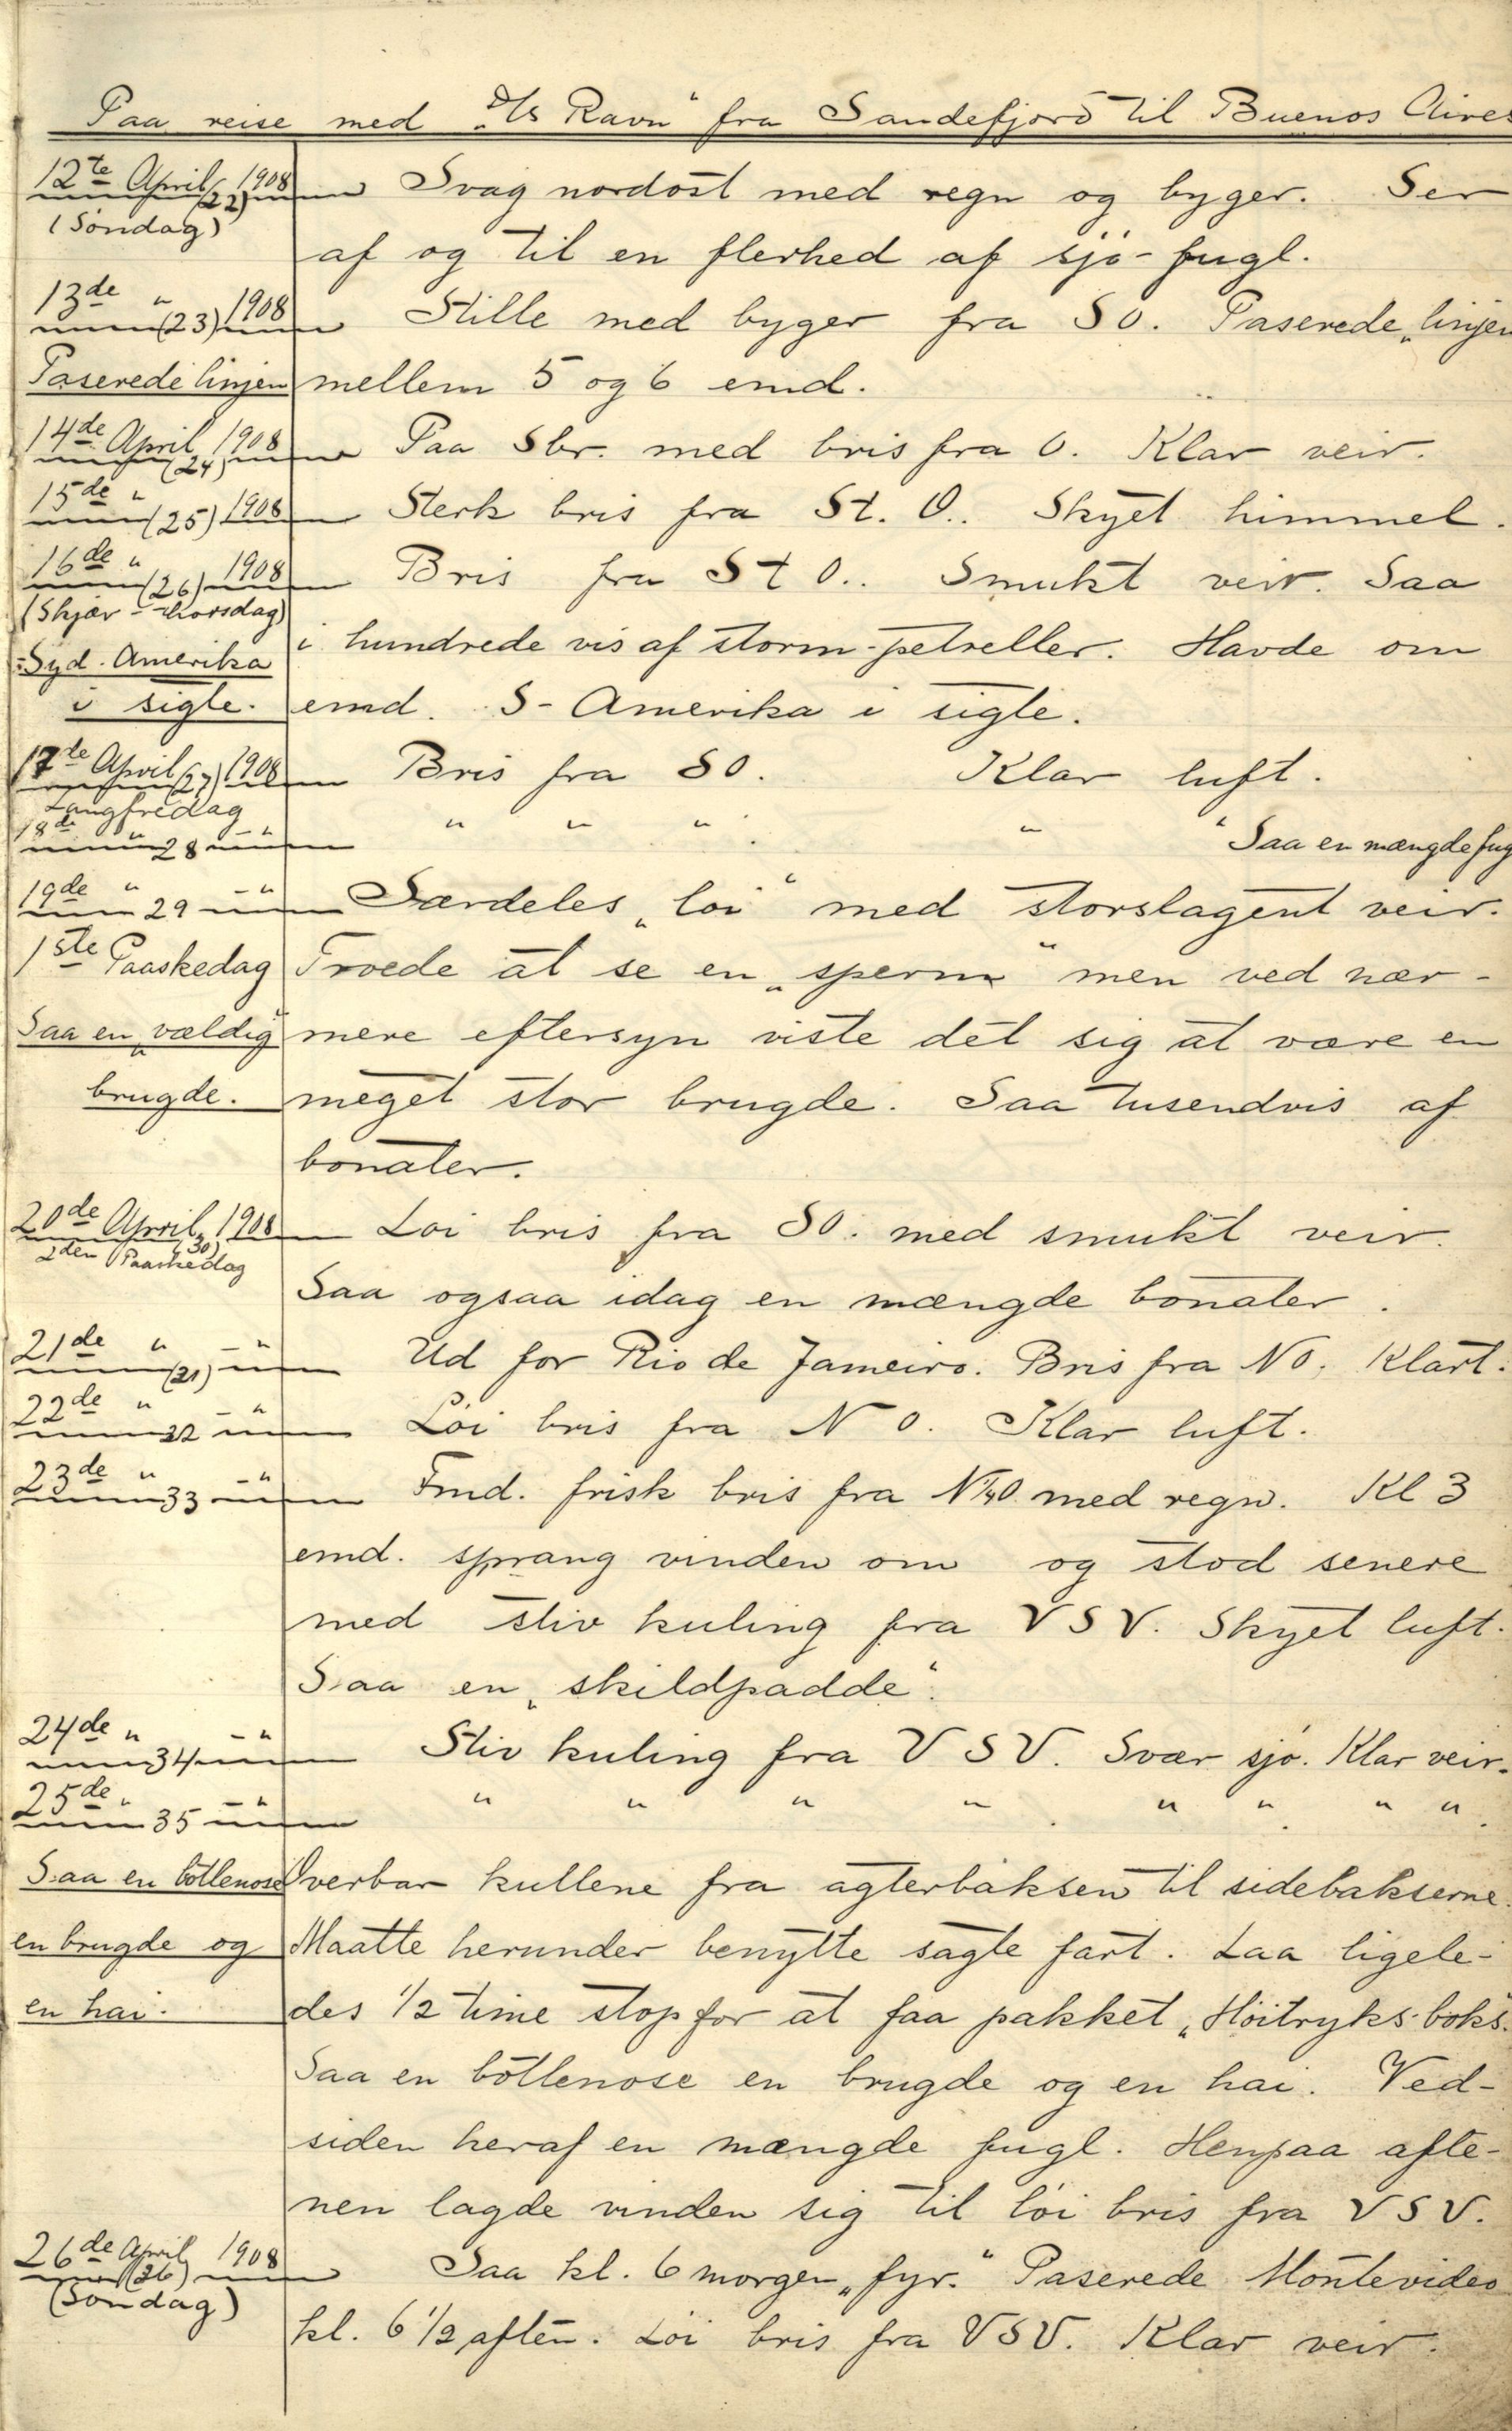 Paa reise med „D/s Ravn“ fra Sandefjord til Buenos Aires
12te April 1908 (22) Svag nordost med regn og byger. Ser
(Søndag)
af og til en flerhed af sjø-fugl.
13de " 1908 (23) Stille med byger fra SO. Paserede „linjen
Paserede linjen mellem 5 og 6 emd.
14de April 1908 (24) Paa Sbr. med bris fra O. Klar veir.
15de " 1908 (25) Sterk bris fra St. O.. Skyet himmel.
16de " 1908 (26) Bris fra St O.. Smukt veir. Saa
(Skjær-thorsdag)
i hundrede vis af storm-petreller. Havde om
Syd. Amerika
i sigte. emd. S-Amerika i sigte.
17de April 1908 (27) Bris fra SO. Klar luft.
Langfredag
18de " - " 28 " " " " " Saa en mængde fug
19de " - " 29 Særdeles „løi“ med storslagent veir.
1ste Paaskedag Troede at se en „sperm“ men ved nær-
Saa en „vældig“ mere eftersyn viste det sig at være en
brugde. meget stor brugde. Saa tusendvis af
bonater.
20de April 1908 (30) Løi bris fra SO. med smukt veir.
2den Paaskedag
Saa ogsaa idag en mængde bonater.
21de " - " (31) Ud for Rio de Jameiro. Bris fra NO. Klart.
22de " - " 32 Løi bris fra N O. Klar luft.
23de " - " 33 Fmd. frisk bris fra NtO. med regn. Kl 3
emd. sprang vinden om og stod senere
med stiv kuling fra VSV. Skyet luft.
Saa en „skildpadde“.
24de " - " 34 Stiv kuling fra VSV. Svær sjø. Klar veir.
25de " - " 35 " " " " " " " "
Saa en bottlenose Overbar kullene fra agterbaksen til sidebakserne.
en brugde og Maatte herunder benytte sagte fart. Laa ligele-
en hai. des 1/2 time stop for at faa pakket „Høitryks-boks.
Saa en bottlenose en brugde og en hai. Ved-
siden heraf en mængde fugl. Henpaa afte-
nen lagde vinden sig til løi bris fra VSV.
26de April 1908 (36) Saa kl. 6 morgen „fyr.“ Paserede Montevideo
(Søndag)
kl. 6 1/2 aften. Løi bris fra VSV. Klar veir.